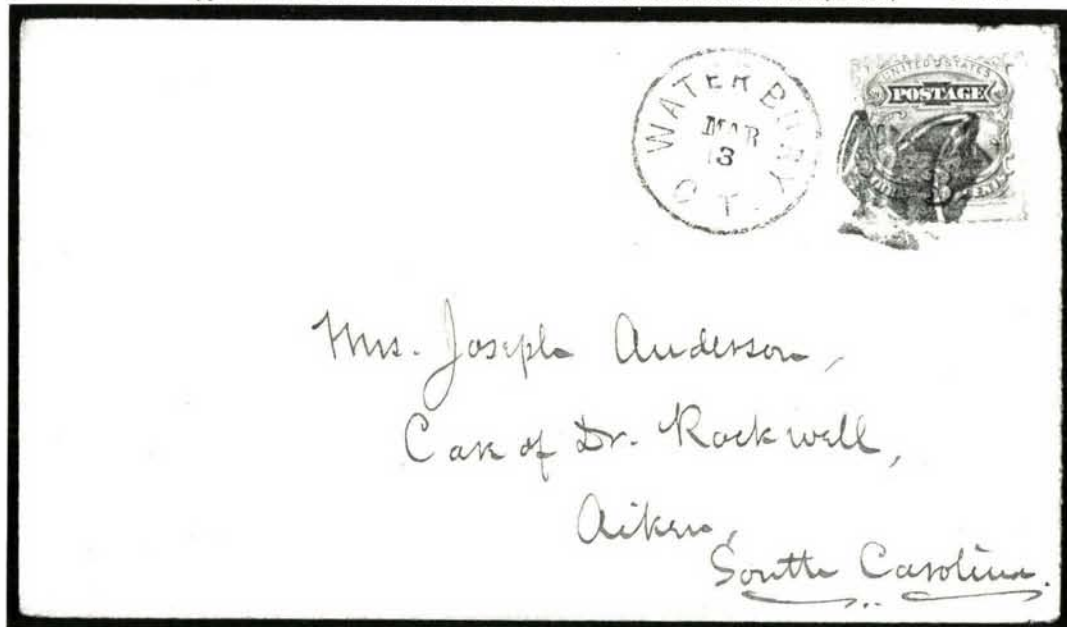 WATERBURY
MAR
13
CT.
UNITED STATES
POSTAGE
3
CENTS
Mrs. Joseph Anderson,
Care of Dr. Rockwell,
Aiken,
South Carolina.